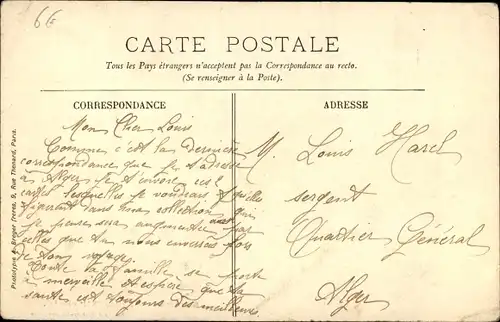 66
CARTE POSTALE
Tous les Pays étrangers n'acceptent pas la Correspondance au recto.
(Se renseigner à la Poste).
CORRESPONDANCE
Mon Cher Louis
Comme c'est la dernière
correspondance que je t'adresse
à Alger je t'envoie ces
cartes lesquelles je voudrais qu'elles
figurent dans ma collection qui
je pense sera augmentée par
celles que tu nous enverras
de ton voyage.
Toute la famille se porte
à merveille et espère que ta
santé est toujours des meilleures.
ADRESSE
M. Louis Harel
sergent
Quartier Général
Alger
Phototypie Berger Frères, 9, Rue Thénard, Paris.